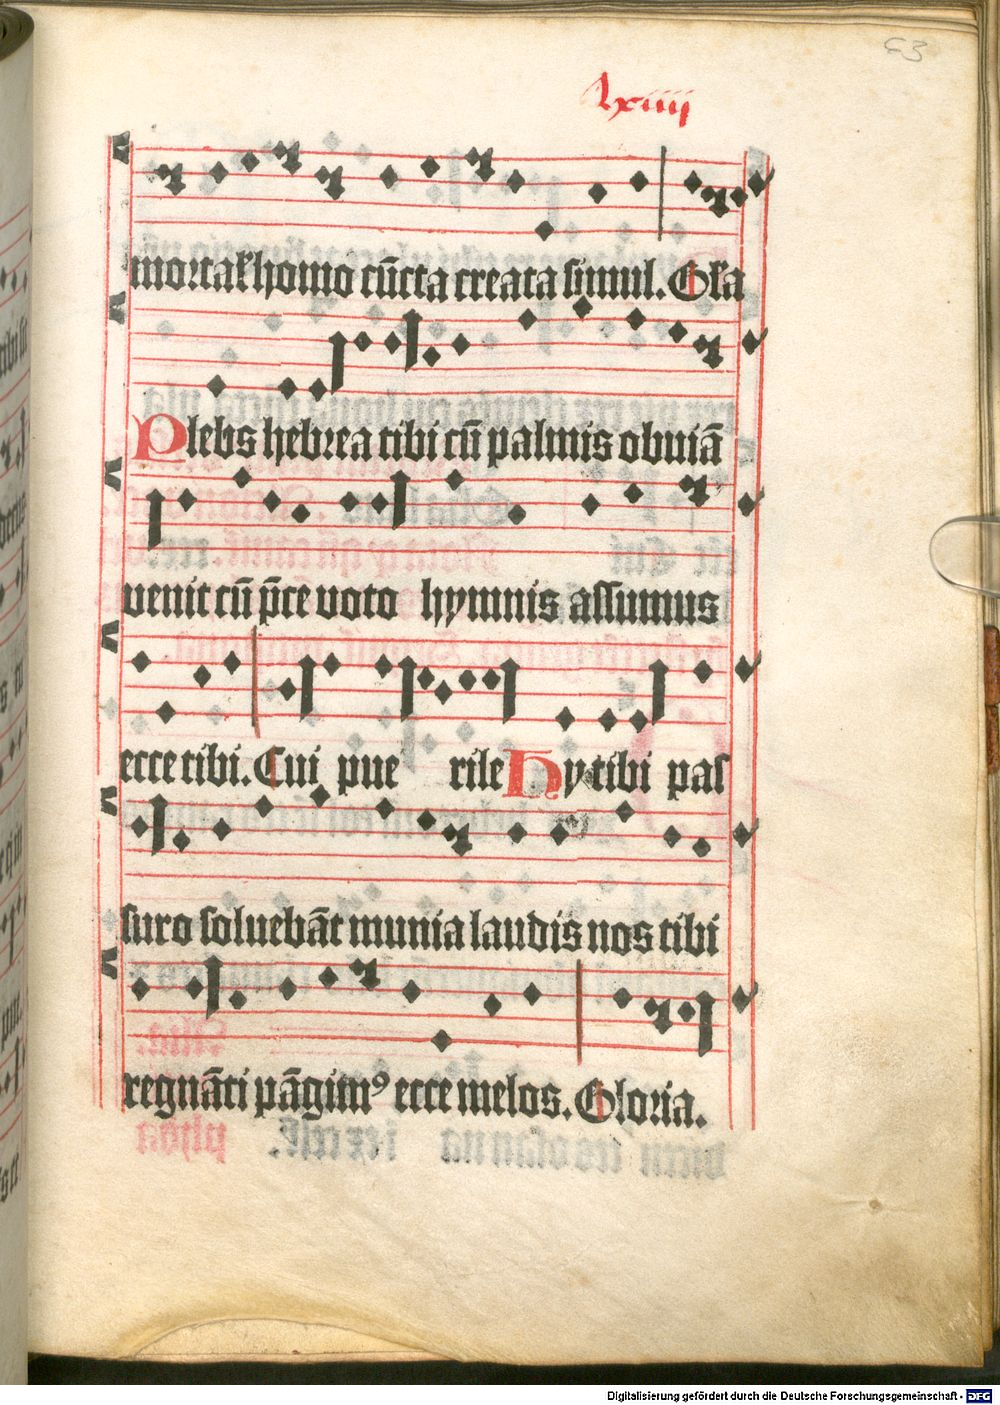 63
lxiiij
mortał homo cūcta creata simul. Gła
Plebs hebrea tibi cū palmis obuiā
uenit cū p̄ce uoto hymnis assumus
ecce tibi. Cui pue rile Hy tibi pas
suro soluebāt munia laudis nos tibi
regnāti pāgimꝰ ecce melos. Gloria.
Digitalisierung gefördert durch die Deutsche Forschungsgemeinschaft - DFG